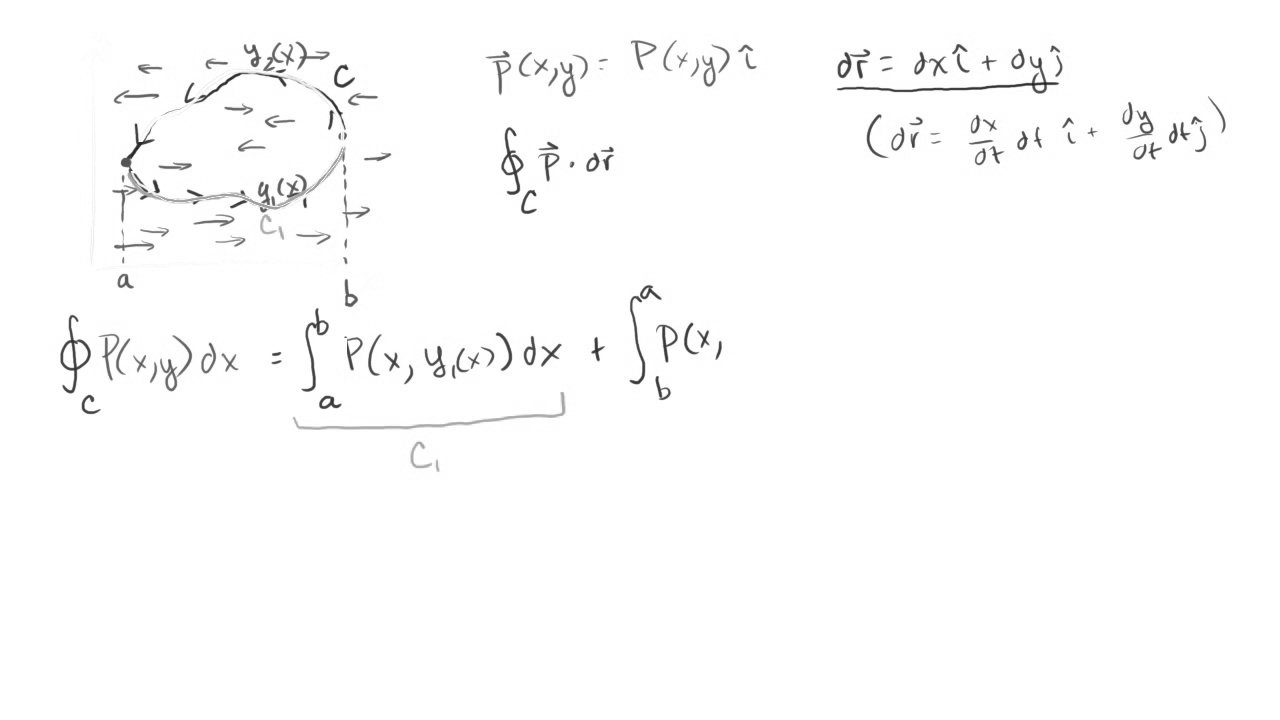 y₂(x)
C
y₁(x)
C₁
a
b
P⃗(x,y) = P(x,y) î
∮_C P⃗ · dr⃗
dr⃗ = dx î + dy ĵ
(dr⃗ = dx/dt dt î + dy/dt dt ĵ)
∮_C P(x,y) dx = ∫_a^b P(x, y₁(x)) dx + ∫_b^a P(x,
C₁